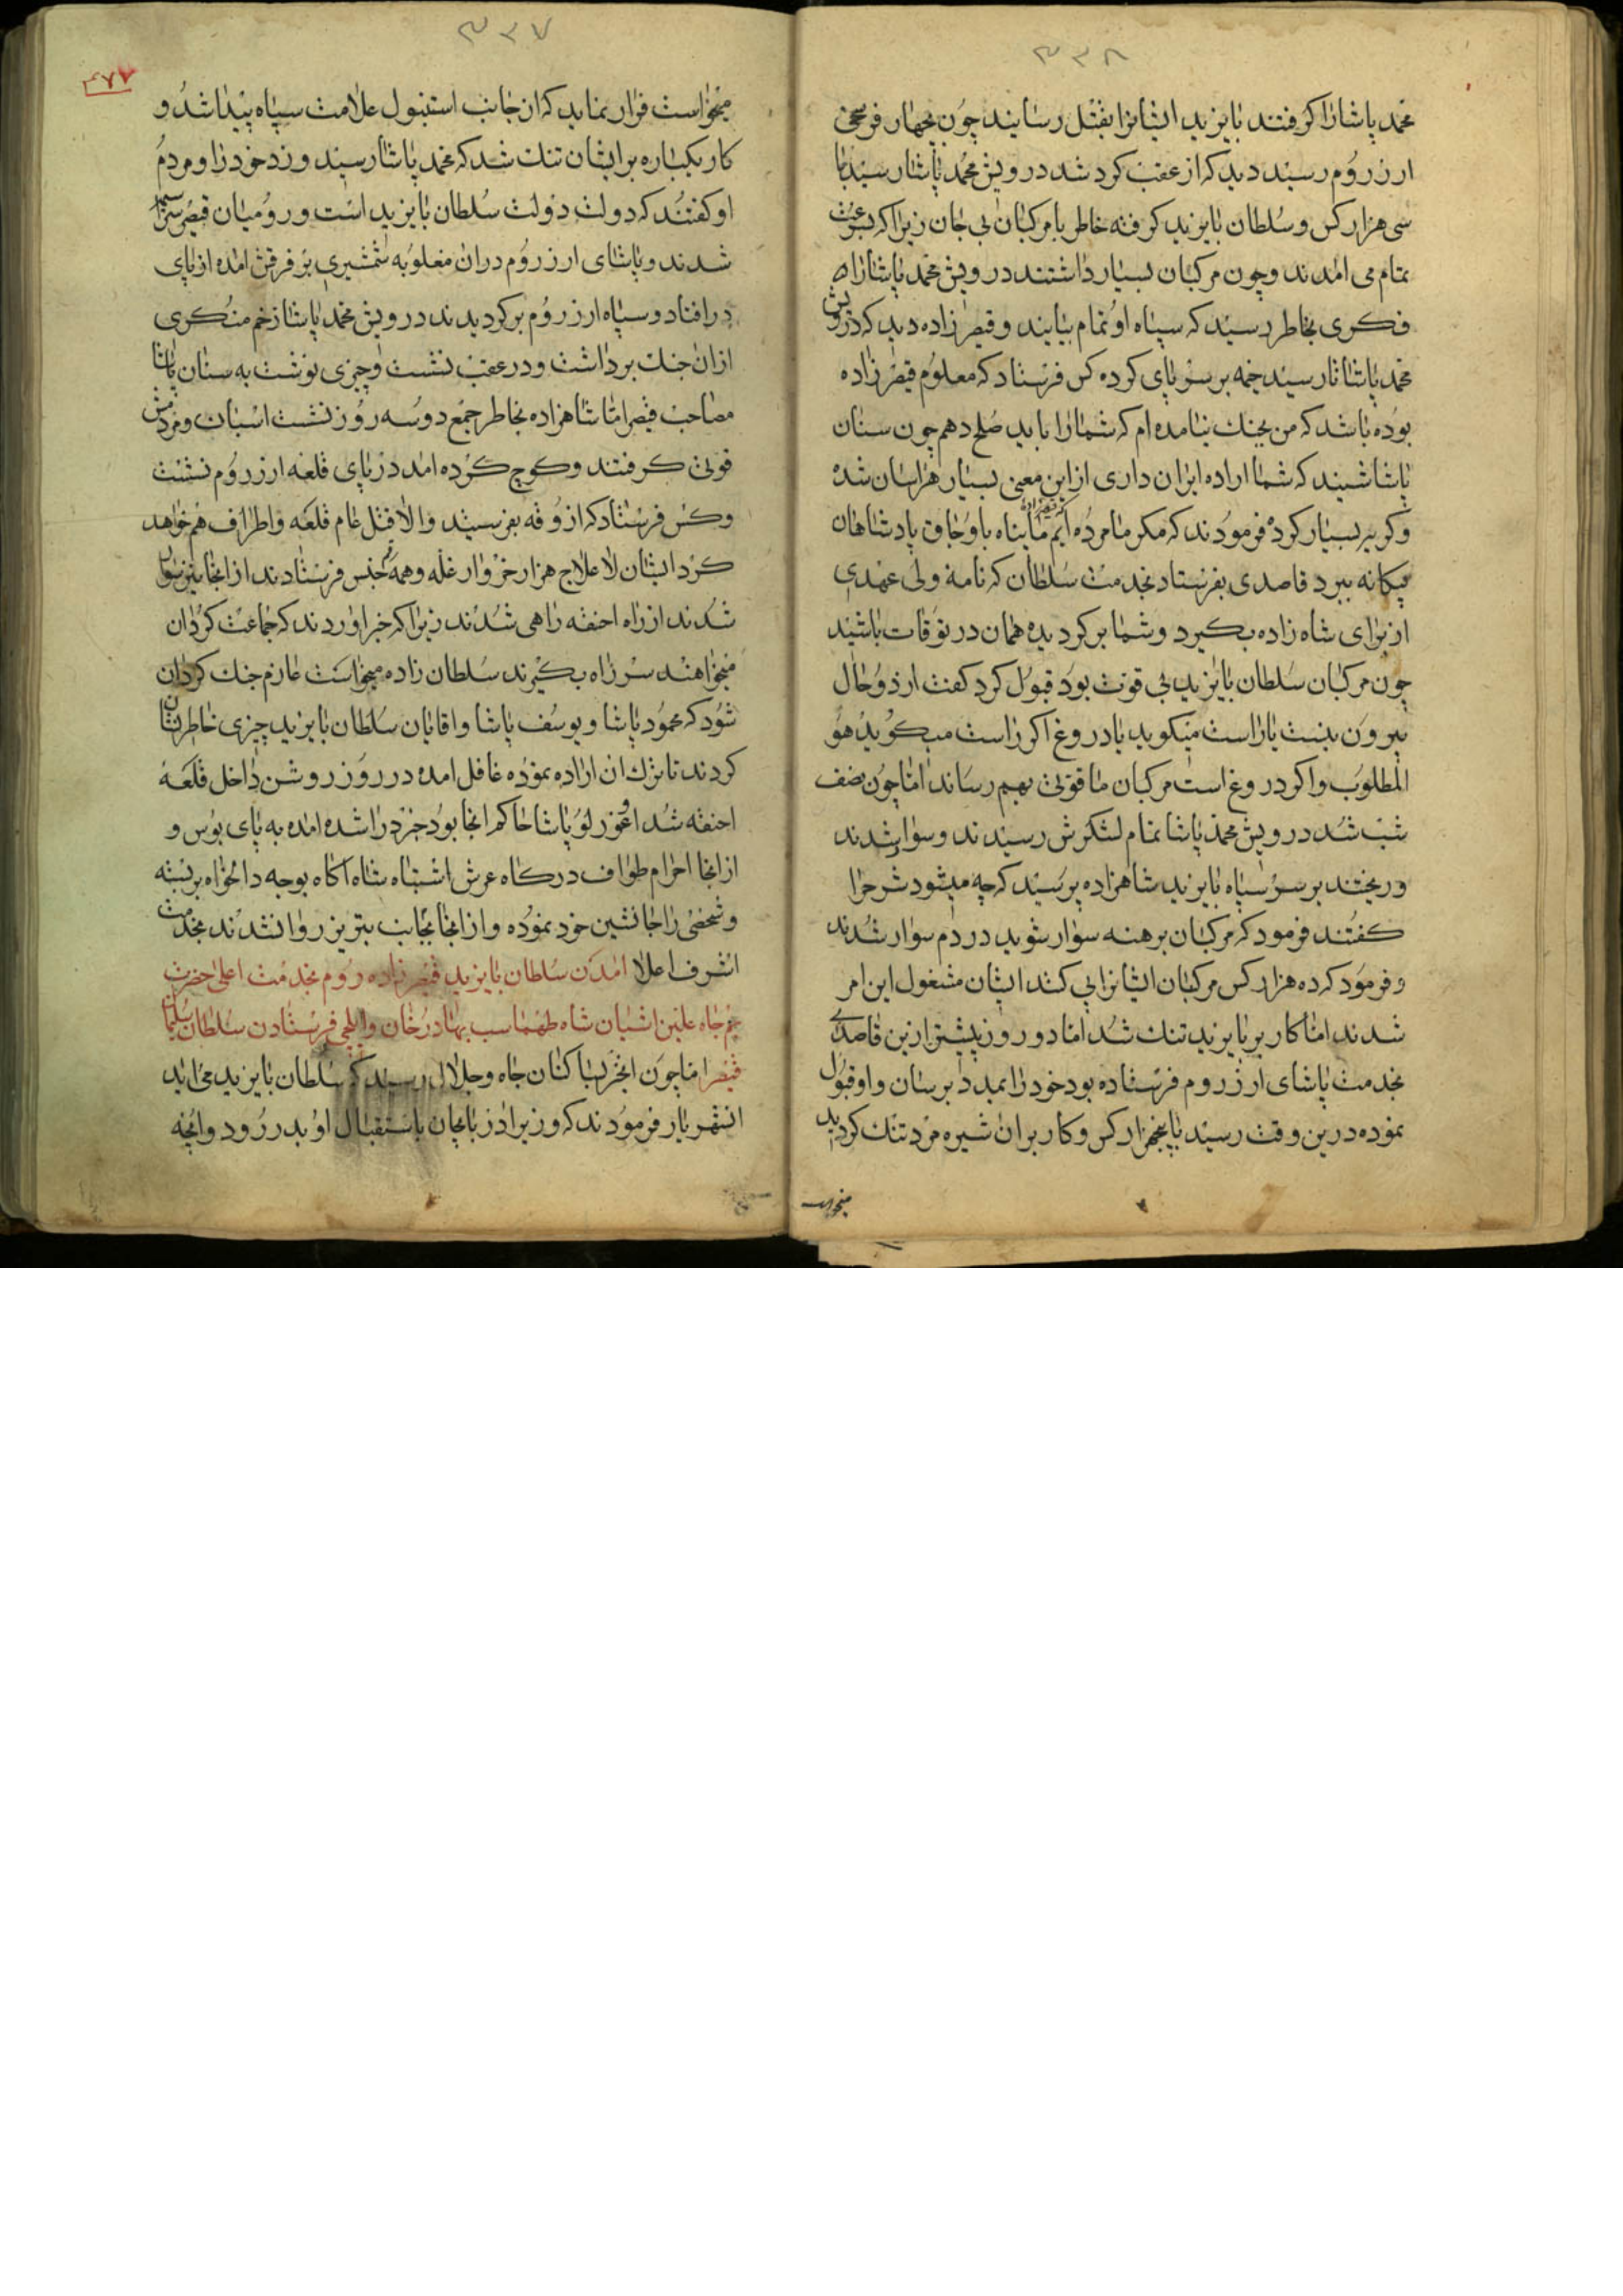 ۳۳۸
محمد پاشا را کرفتند بایزید ایشانرا بقتل رسانید چون بچهار فرسخی
ارزروم رسید دید که از عقب کرد شد درویش محمد پاشا رسید با
سی هزار کس و سلطان بایزید کرفته خاطر با مرکبان بی جان زیرا که
تمام می امدند و چون مرکبان بسیار داشتند درویش محمد پاشا را
فکری بخاطر رسید که سپاه او تمام بیایند و قیصر زاده دید که درویش
محمد پاشا تا رسید خیمه بر سر پای کرده کس فرستاد که معلوم قیصر زاده
بوده باشد که من بجنک نیامده ام که شما را باید صلح دهم چون سنان
پاشا شنید که شما اراده ایران داری از این معنی بسیار هراسان شده
و کریه بسیار کرد فرمودند که مکر ما مرده ایم که قیصر زاده ما پناه باوجاق پادشاهان
بیکانه ببرد قاصدی بفرستاد بخدمت سلطان که نامه ولی عهدی
از برای شاه زاده بکیرد و شما بر کردیده همان در توقات باشید
چون مرکبان سلطان بایزید بی قوت بود قبول کرد کفت از دو حال
بیرون نیست یا راست میکوید یا دروغ اکر راست میکوید هو
المطلوب و اکر دروغ است مرکبان ما قوتی بهم رساند اما چون نصف
شب شد درویش محمد پاشا تمام لشکرش رسیدند و سوار شدند
و ریختند بر سر سپاه بایزید شاهزاده پرسید که چه میشود شرح را
کفتند فرمود که مرکبان برهنه سوار شوید در دم سوار شدند
و فرمود که ده هزار کس مرکبان ایشانرا پی کنند ایشان مشغول این امر
شدند اما کار بر بایزید تنک شد اما دو روز پیشتر ازین قاصدی
بخدمت پاشای ارزروم فرستاده بود خود را بمدد برسان و او قبول
نموده درین وقت رسید با پنجهزار کس و کار بر ان شیره مرد تنک کردید
میخواست
۳۳۷
۴۷۷
میخواست فرار نماید که از جانب استنبول علامت سپاه پیدا شد و
کار یکباره بر ایشان تنک شد که محمد پاشا رسید و زد خود را و مردم
او کفتند که دولت دولت سلطان بایزید است و رومیان قیصر
شدند و پاشای ارزروم دران مغلوبه شمشیری بر فرقش امده از پای
در افتاد و سپاه ارزروم بر کردیدند درویش محمد پاشا زخم منکری
از ان جنک برداشت و در عقب نشست و چیزی نوشت به سنان پاشا
مصاحب قیصر اما شاهزاده بخاطر جمع دو سه روز نشست اسبان و مردمش
قوتی کرفتند و کوچ کرده امد در پای قلعه ارزروم نشست
و کس فرستاد که ازوقه بفرسید والا قتل عام قلعه و اطراف هم خواهد
کرد ایشان لاعلاج هزار خروار غله و همه جنس فرستادند از انجا نیز سوار
شدند از راه احنفه راهی شدند زیرا که خبر اوردند که جماعت کردان
میخواهند سر راه بکیرند سلطان زاده میخواست عازم جنک کردان
شود که محمود پاشا و یوسف پاشا و اقایان سلطان بایزید چیزی خاطر نشان
کردند تا ترک ان اراده نموده غافل امده در روز روشن داخل قلعه
احنفه شد اغوزلو پاشا حاکم انجا بود خبردرا شده امده به پای بوس و
از انجا احرام طواف درکاه عرش اشتباه شاه اکاه بوجه دلخواه بر بسته
و شخصی را جانشین خود نموده و از انجا بجانب تبریز روا نشدند بخدمت
اشرف اعلا امدن سلطان بایزید قیصر زاده روم بخدمت اعلی حضرت
جم جاه علین اشیان شاه طهماسب بهادر خان و ایلچی فرستادن سلطان سلیمان
قیصر اما چون انخر بسا کنان جاه و جلال رسید که سلطان بایزید می اید
انشهریار فرمودند که وزیر اذربایجان باستقبال او بدر رود و انچه